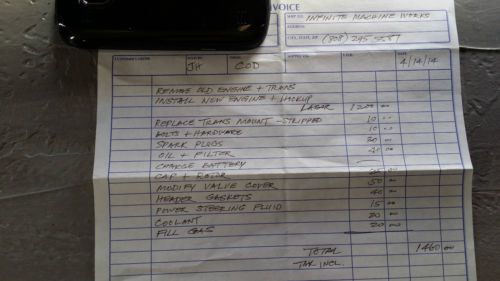 VOICE
SHIP TO INFINITE MACHINE WORKS
ADDRESS
CITY, STATE, ZIP (808) 245
JH COD DATE 4/14/14
REMOVE OLD ENGINE + TRANS
INSTALL NEW ENGINE + HOOKUP
LABOR 1200 00
REPLACE TRANS MOUNT - STRIPPED 10 00
BOLTS + HARDWARE 10 00
SPARK PLUGS 20 00
OIL + FILTER 00
CHARGE BATTERY
CAP + ROTOR 00
MODIFY VALVE COVER 50 00
HEADER GASKETS 40 00
POWER STEERING FLUID 15 00
COOLANT 20 00
FILL GAS 20 00
TOTAL 1460 00
TAX INCL.